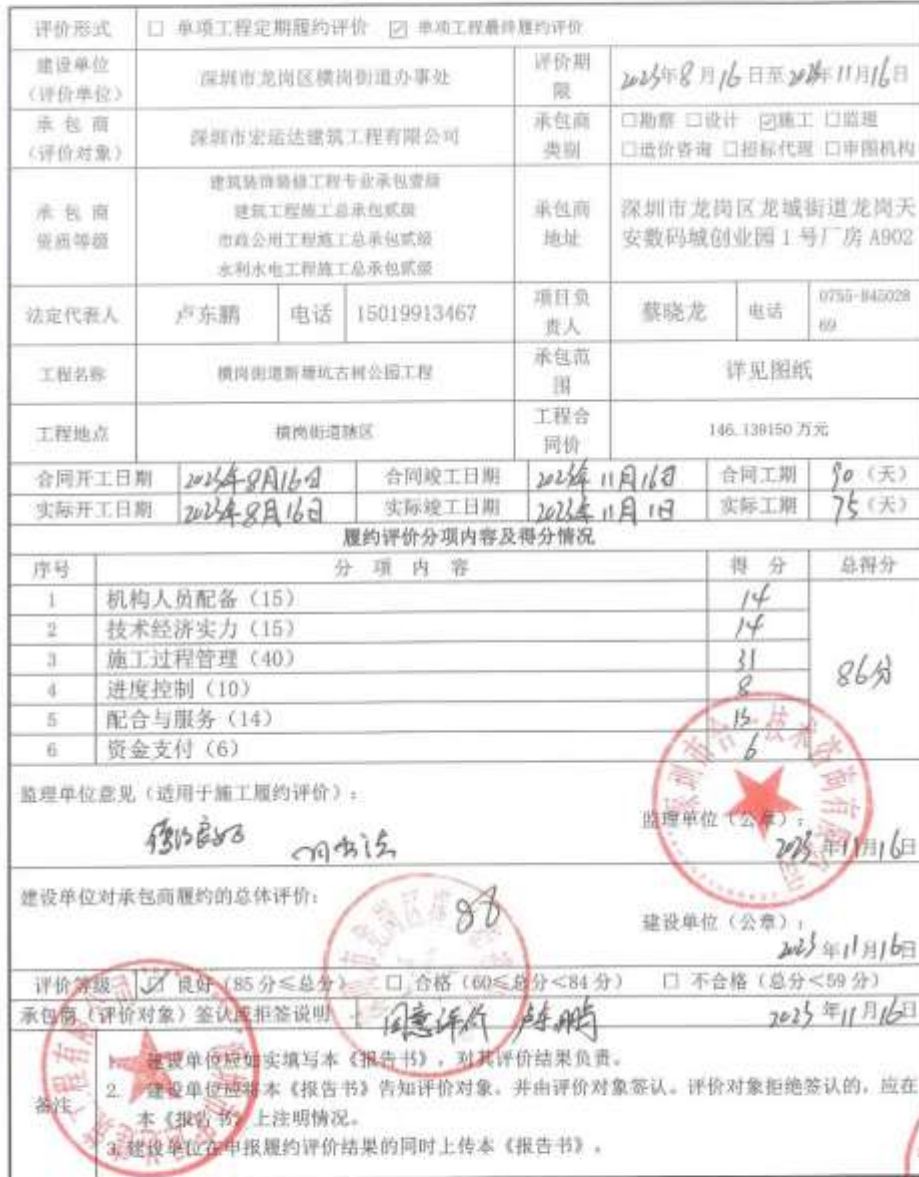 评价形式 □ 单项工程定期履约评价 ☑ 单项工程最终履约评价
建设单位（评价单位） 深圳市龙岗区横岗街道办事处 评价期限 2023年8月16日至2023年11月16日
承包商（评价对象） 深圳市宏运达建筑工程有限公司 承包商类别 □勘察 □设计 ☑施工 □监理
□造价咨询 □招标代理 □审图机构
承包商资质等级 建筑装饰装修工程专业承包壹级
建筑工程施工总承包贰级
市政公用工程施工总承包贰级
水利水电工程施工总承包贰级
承包商地址 深圳市龙岗区龙城街道龙岗天
安数码城创业园1号厂房 A902
法定代表人 卢东鹏 电话 15019913467 项目负责人 蔡晓龙 电话 0755-84502869
工程名称 横岗街道新塘坑古树公园工程 承包范围 详见图纸
工程地点 横岗街道辖区 工程合同价 146.139150 万元
合同开工日期 2023年8月16日 合同竣工日期 2023年11月16日 合同工期 90（天）
实际开工日期 2023年8月16日 实际竣工日期 2023年11月1日 实际工期 75（天）
履约评价分项内容及得分情况
序号 分项内容 得分 总得分
1 机构人员配备（15） 14
2 技术经济实力（15） 14
3 施工过程管理（40） 31
4 进度控制（10） 8
5 配合与服务（14） 13
6 资金支付（6） 6
86分
监理单位意见（适用于施工履约评价）：
监理单位（公章）：
2023年11月16日
建设单位对承包商履约的总体评价：
建设单位（公章）：
2023年11月16日
评价等级 ☑ 良好（85分≤总分） □ 合格（60≤总分<84分） □ 不合格（总分<59分）
承包商（评价对象）签认或拒签说明 同意评价 卢东鹏 2023年11月16日
备注
1. 建设单位应如实填写本《报告书》，对其评价结果负责。
2. 建设单位应将本《报告书》告知评价对象，并由评价对象签认。评价对象拒绝签认的，应在
本《报告书》上注明情况。
3.建设单位在申报履约评价结果的同时上传本《报告书》。